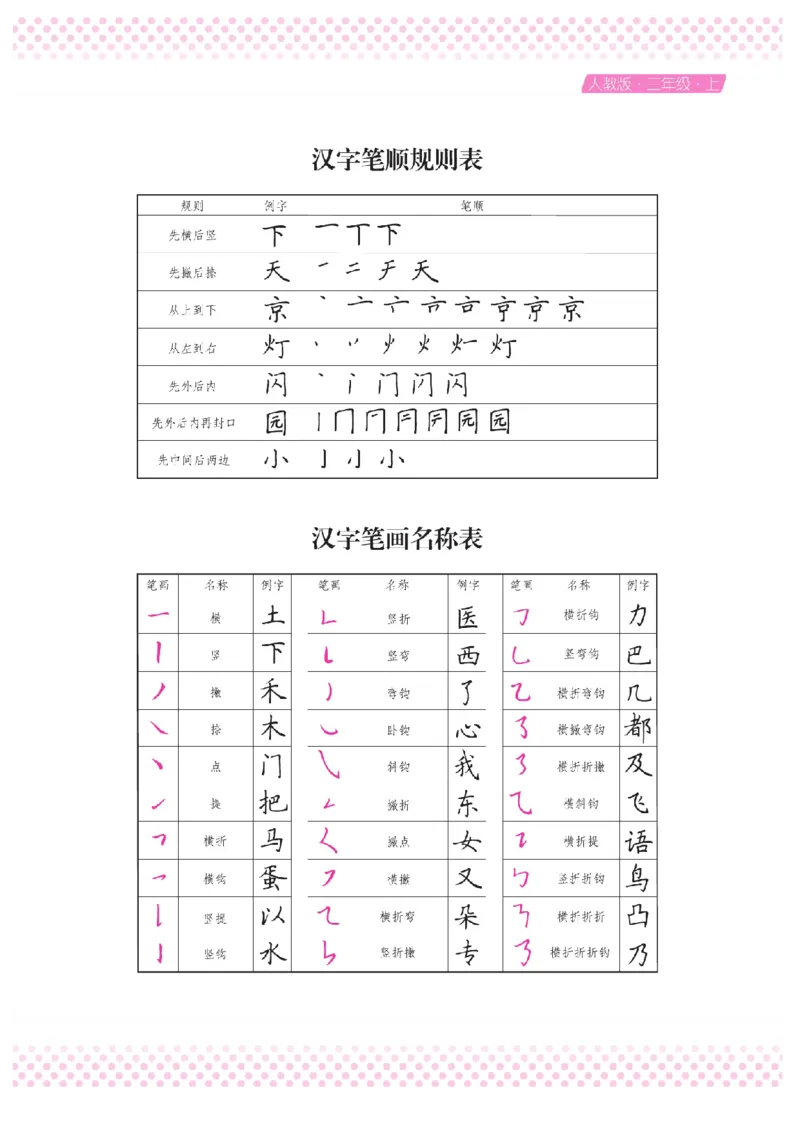 人教版·二年级·上
汉字笔顺规则表
规则 例字 笔顺
先横后竖 下 一 丅 下
先撇后捺 天 一 二 チ 天
从上到下 京 丶 亠 京
从左到右 灯 丶 丷 火 灯
先外后内 闪 丶 门 闪
先外后内再封口 园 丨 冂 园
先中间后两边 小 亅 小
汉字笔画名称表
笔画 名称 例字 笔画 名称 例字 笔画 名称 例字
一 横 土 ㇗ 竖折 医 ㇆ 横折钩 力
丨 竖 下 ㇄ 竖弯 西 乚 竖弯钩 巴
丿 撇 禾 ㇁ 弯钩 了 ㇈ 横折弯钩 几
㇏ 捺 木 ㇃ 卧钩 心 ㇌ 横撇弯钩 都
丶 点 门 ㇂ 斜钩 我 ㇋ 横折折撇 及
㇀ 提 把 ㇜ 撇折 东 ⺄ 横斜钩 飞
㇕ 横折 马 ㇛ 撇点 女 ㇊ 横折提 语
㇖ 横钩 蛋 ㇇ 横撇 又 ㇉ 竖折折钩 鸟
㇙ 竖提 以 ㇍ 横折弯 朵 ㇎ 横折折折 凸
亅 竖钩 水 ㇞ 竖折撇 专 ㇡ 横折折折钩 乃